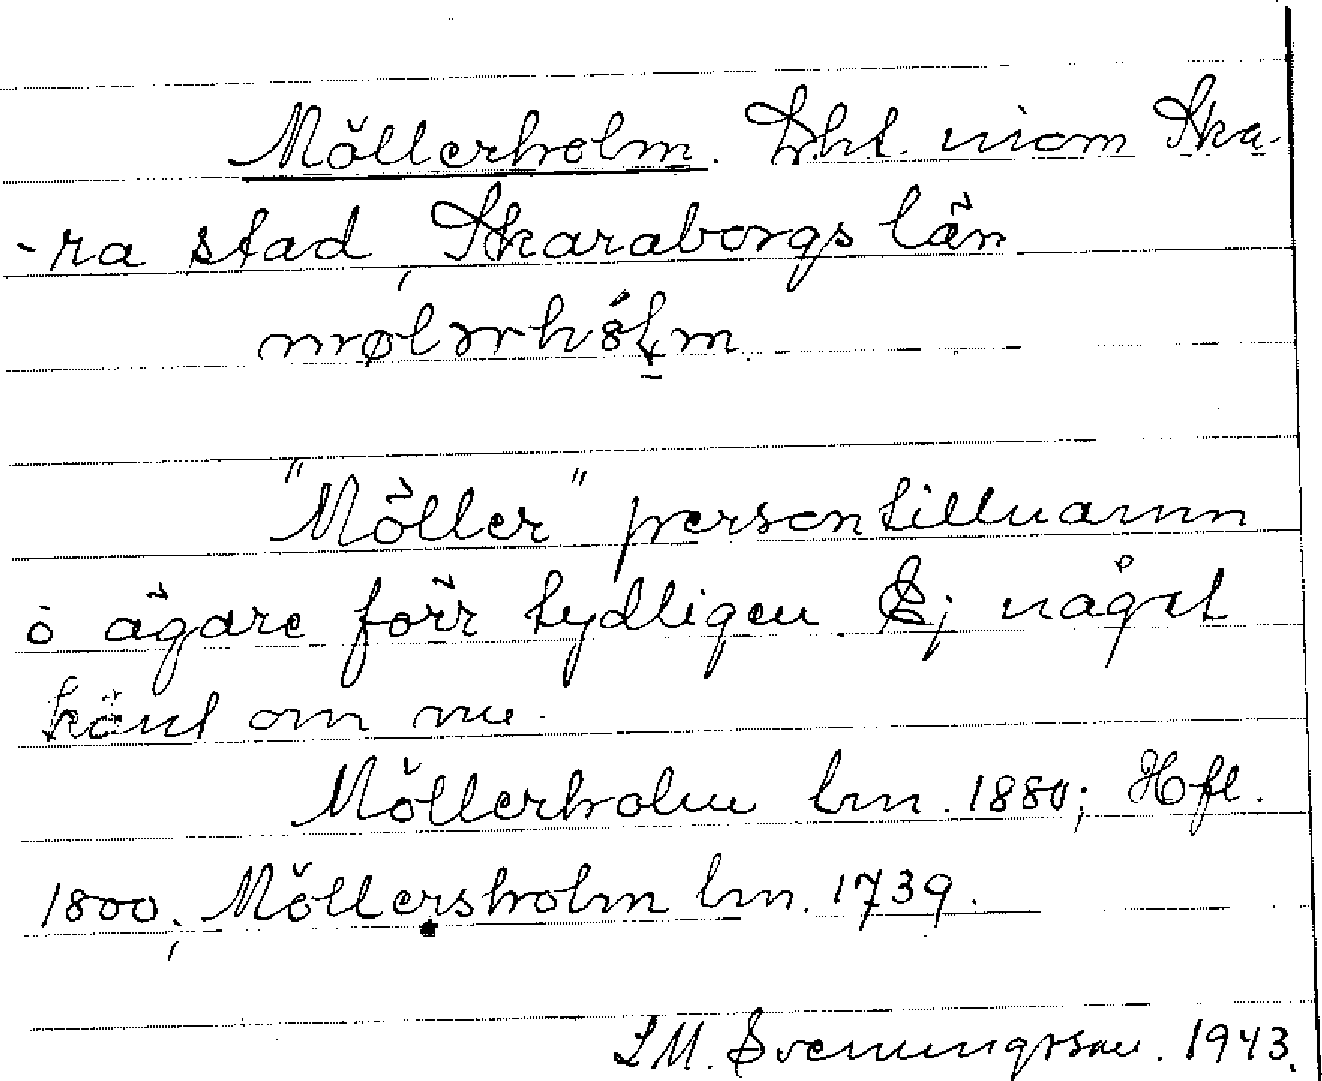 Möllerholm. Lht. inom Ska-
-ra stad, Skaraborgs län
mølərhólm
"Möller" persontillnamn
ò ägare förr tydligen. Ej något
känt om nu.
Möllerholm lm. 1880; Hfl.
1800; Möllersholm lm. 1739.
LM. Svenungsson. 1943.